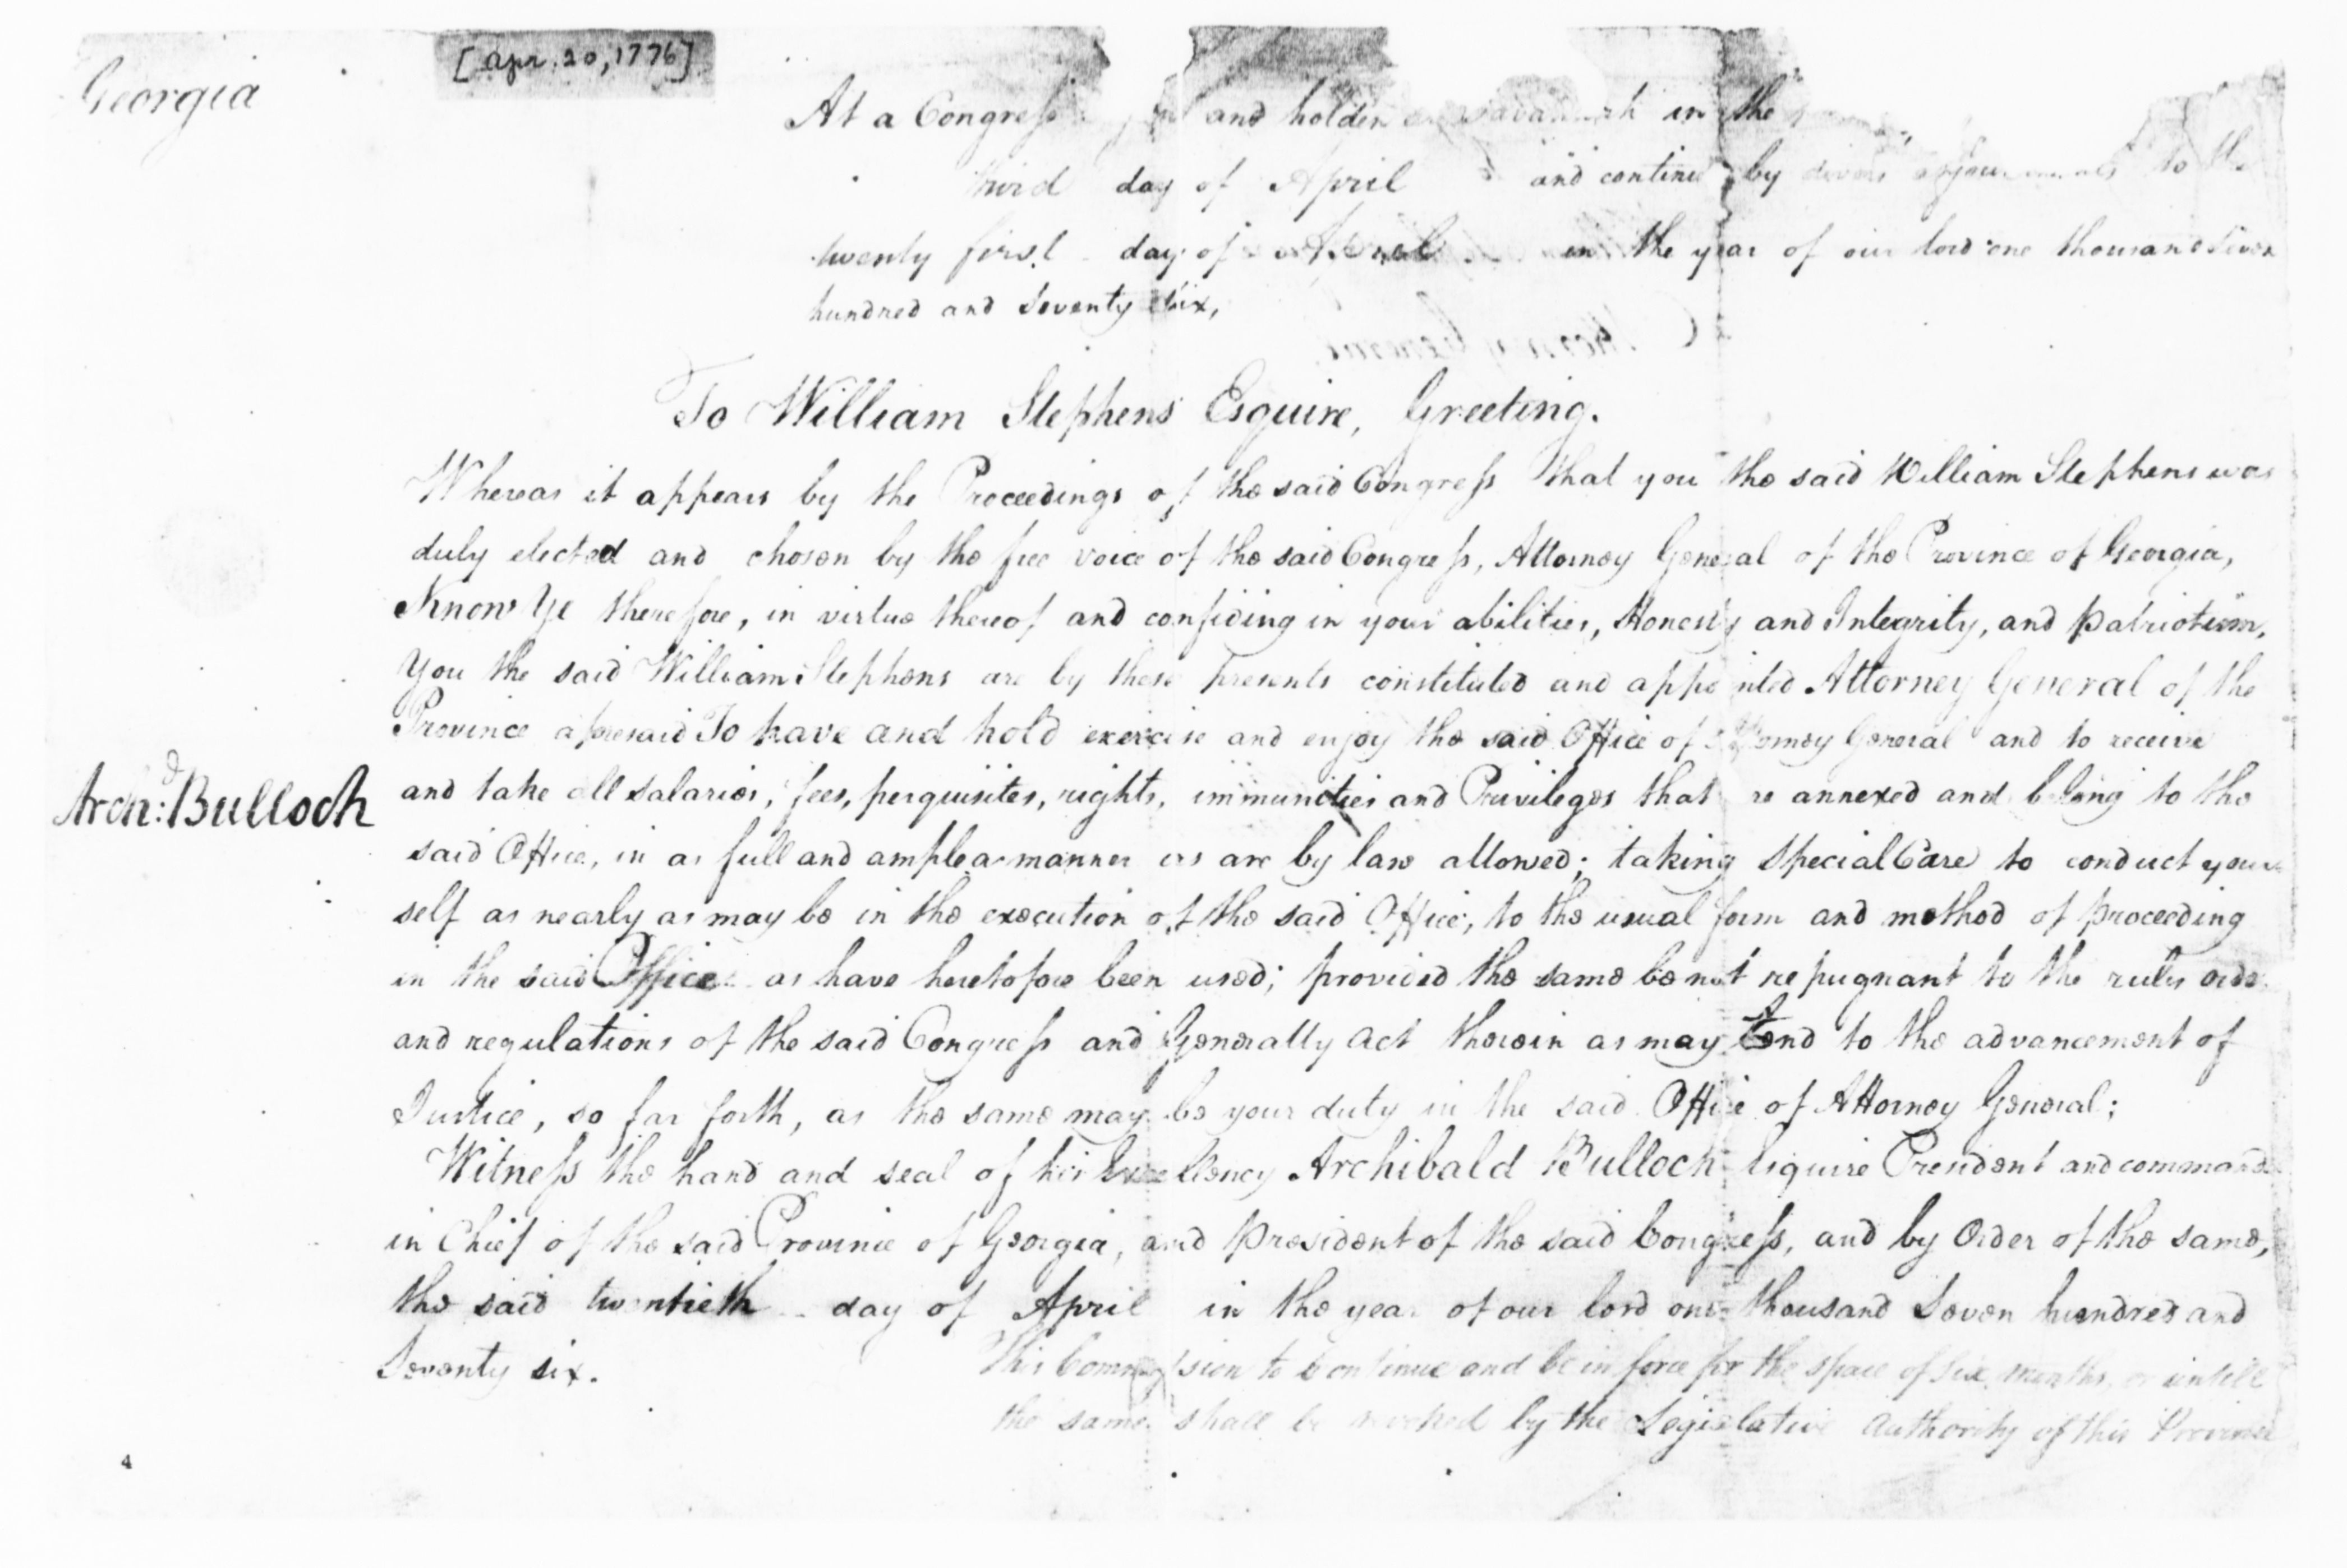 Georgia
[Apr. 20, 1776]
At a Congress and holden Savannah in the
third day of April and continued by divers adjournments to the
twenty first day of April in the year of our lord one thousand Seven
hundred and Seventy Six,
To William Stephens Esquire, Greeting.
Whereas it appears by the Proceedings of the said Congress that you the said William Stephens was
duly elected and chosen by the free voice of the said Congress, Attorney General of the Province of Georgia,
Know Ye therefore, in virtue thereof and confiding in your abilities, Honesty and Integrity, and patriotism,
You the said William Stephens are by these presents constituted and appointed Attorney General of the
Province aforesaid To have and hold exercise and enjoy the said Office of Attorney General and to receive
and take all salaries, fees, perquisites, rights, immunities and Privileges that are annexed and belong to the
Archd: Bulloch
said Office, in as full and ample a manner as are by law allowed; taking special Care to conduct your
self as nearly as may be in the execution of the said Office, to the usual form and method of proceeding
in the said Office as have heretofore been used; provided the same be not repugnant to the rules orde
and regulations of the said Congress and Generally act therein as may tend to the advancement of
Justice, so far forth, as the same may be your duty in the said Office of Attorney General;
Witness the hand and seal of his Excellency Archibald Bulloch Esquire President and command
in Chief of the said Province of Georgia, and President of the said Congress, and by Order of the same,
the said twentieth day of April in the year of our lord one thousand Seven hundred and
Seventy six.
This Commission to continue and be in force for the space of six months or untill
the same shall be revoked by the Legislative authority of this Province
4